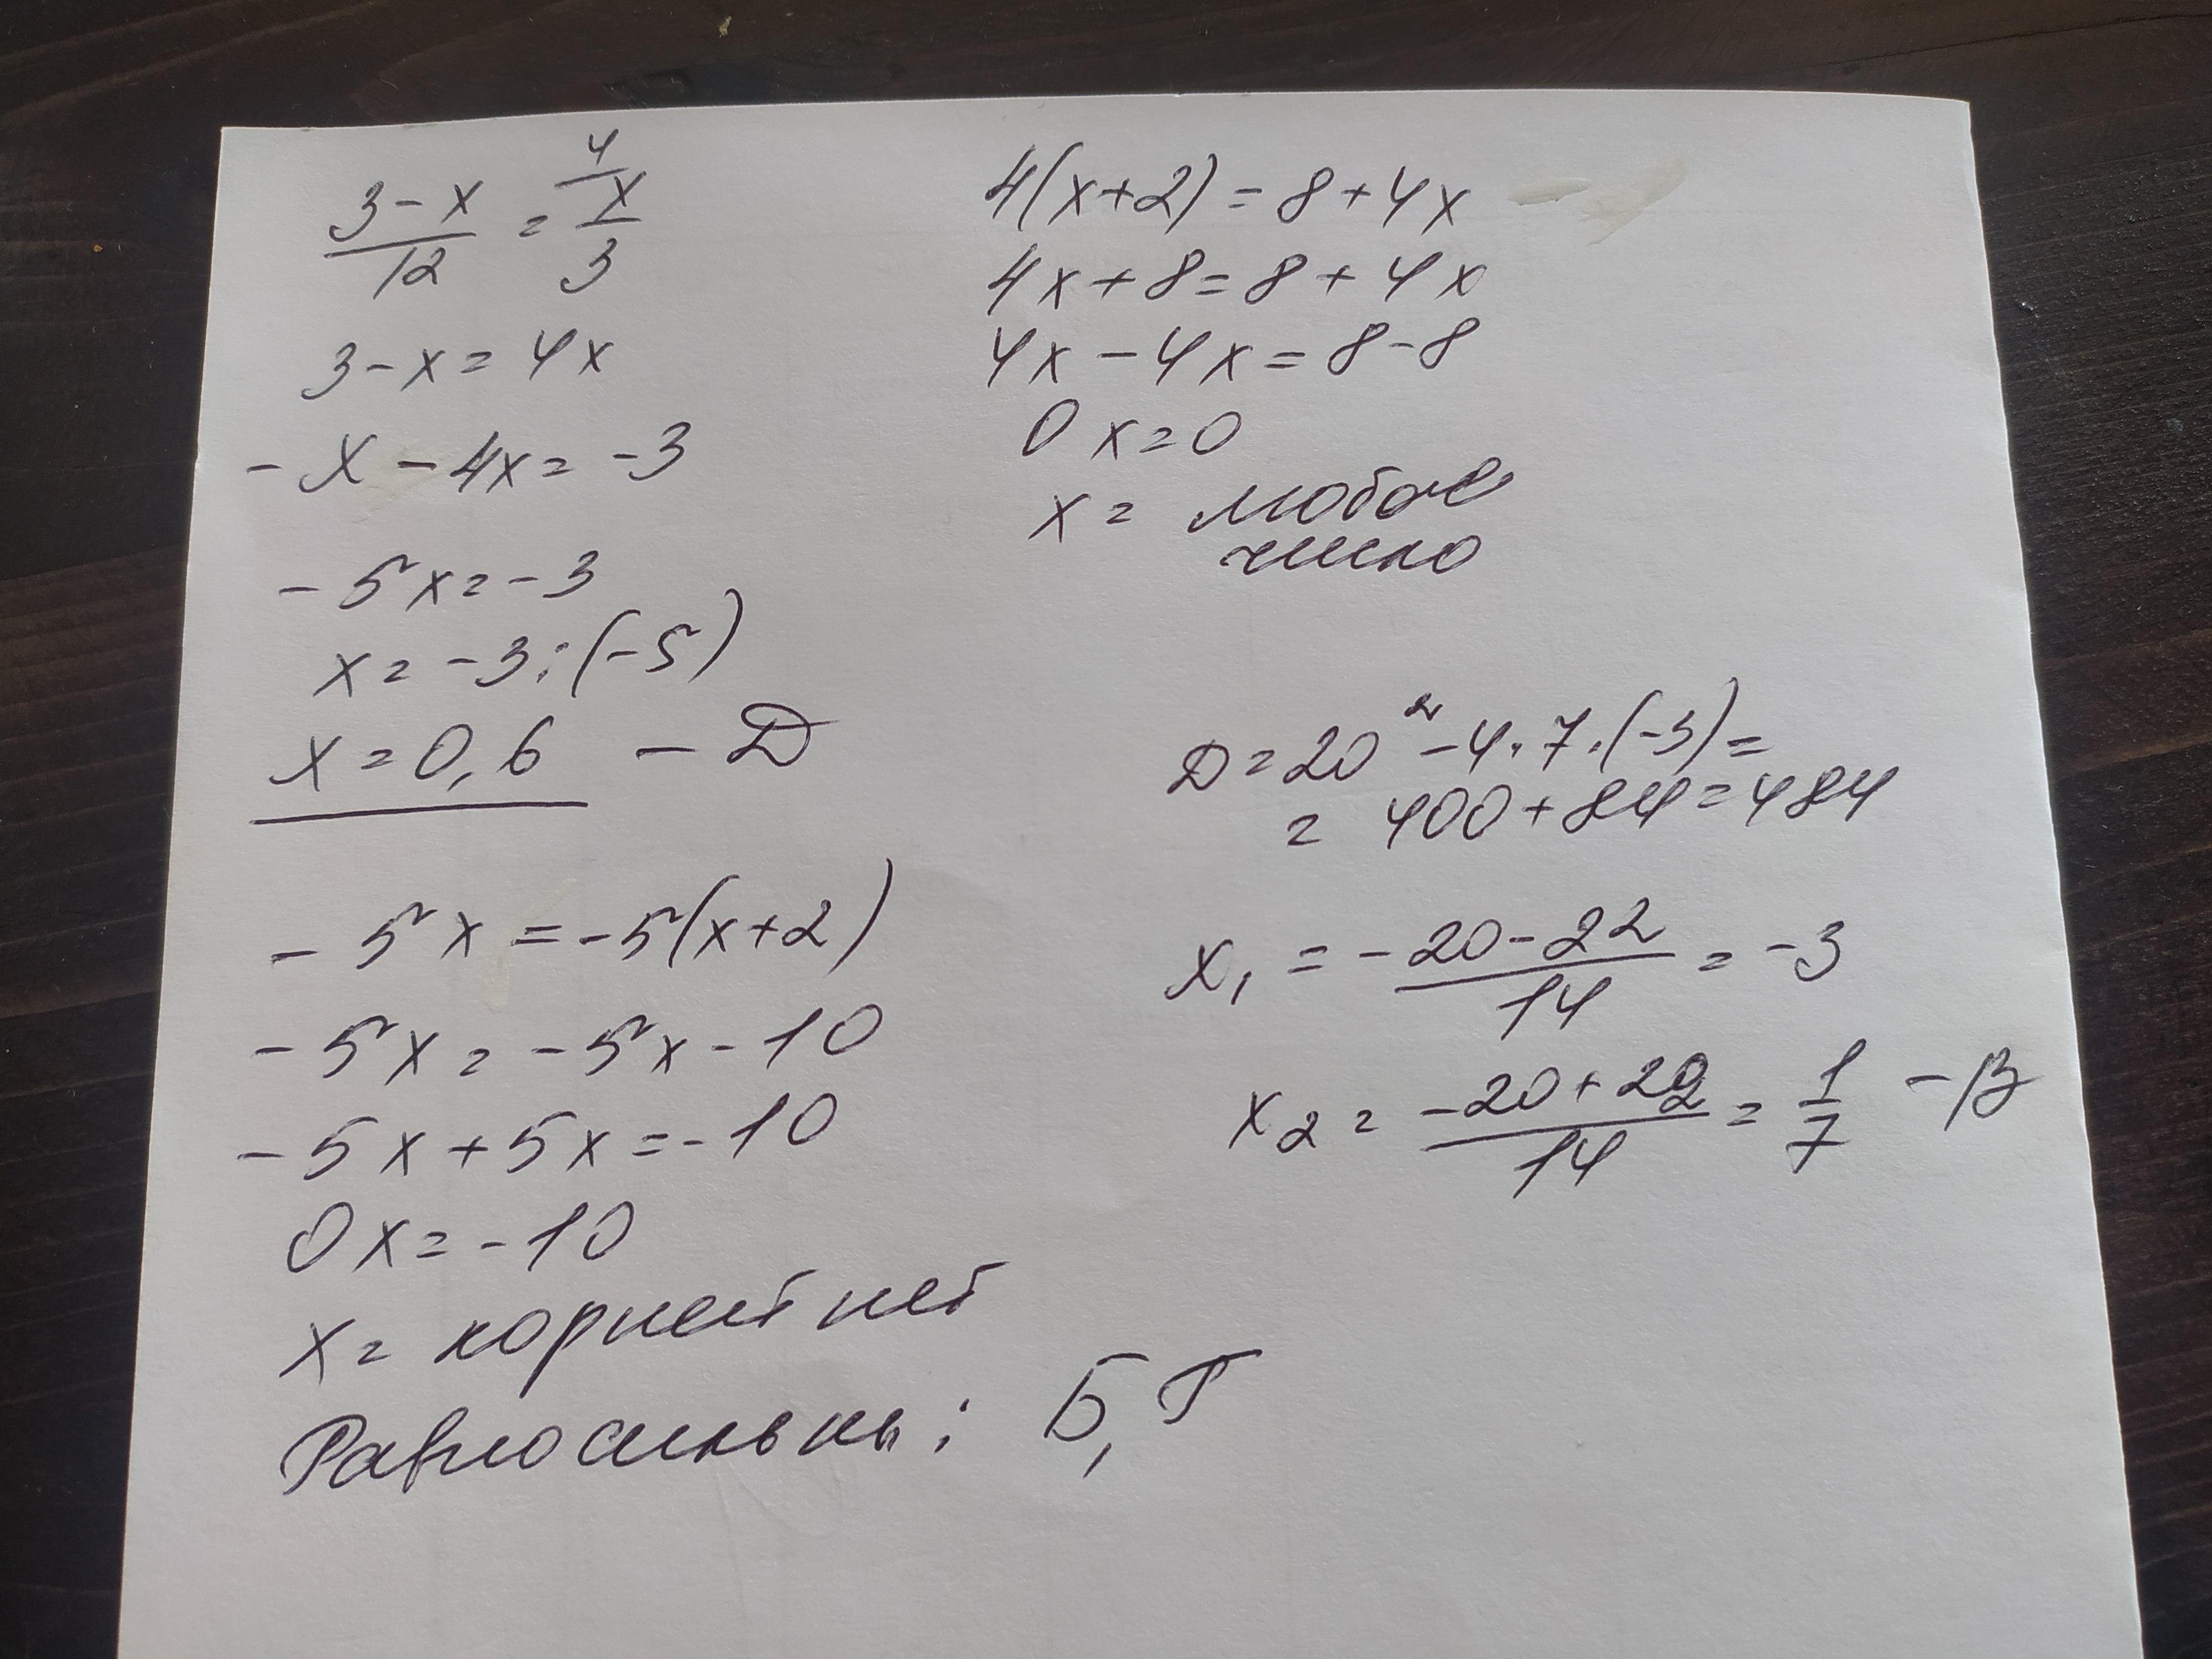 3-x/12 = 4/x/3
3-x = 4x
-x - 4x = -3
-5x = -3
x = -3:(-5)
x = 0,6 - Д
-5x = -5(x+2)
-5x = -5x - 10
-5x + 5x = -10
0x = -10
x = корней нет
Равносильны: Б, Г
4(x+2) = 8+4x
4x+8 = 8+4x
4x - 4x = 8-8
0x = 0
x = любое
число
D = 20² - 4·7·(-3) =
= 400+84 = 484
x₁ = -20-22/14 = -3
x₂ = -20+22/14 = 1/7 - В